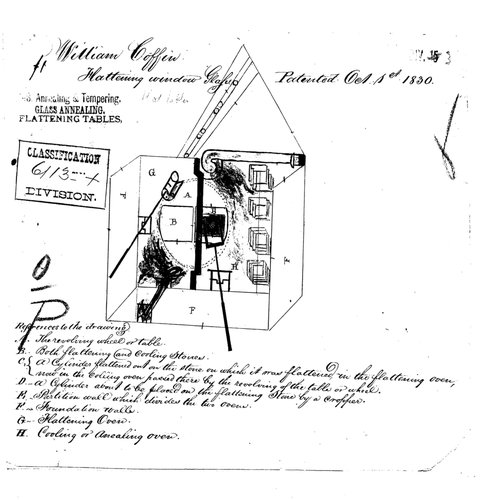 William Coffin
Flattening window Glass. Patented Oct. 1st 1830.
Annealing & Tempering.
GLASS ANNEALING,
FLATTENING TABLES,
CLASSIFICATION
DIVISION.
G
F
A
B
B
H
F
F
References to the drawing
A. The revolving wheel or table.
B. Both flattening and Cooling Stones.
C. { a Cylinder flattened out on the stone on which it was flattened in the flattening oven,
now in the cooling oven placed there by the revolving of the table or wheel.
D. a Cylinder about to be placed on the flattening Stone by a cropper.
E. Partition wall which divides the two ovens.
F. Foundation walls.
G. Flattening Oven.
H. Cooling or Anealing oven.